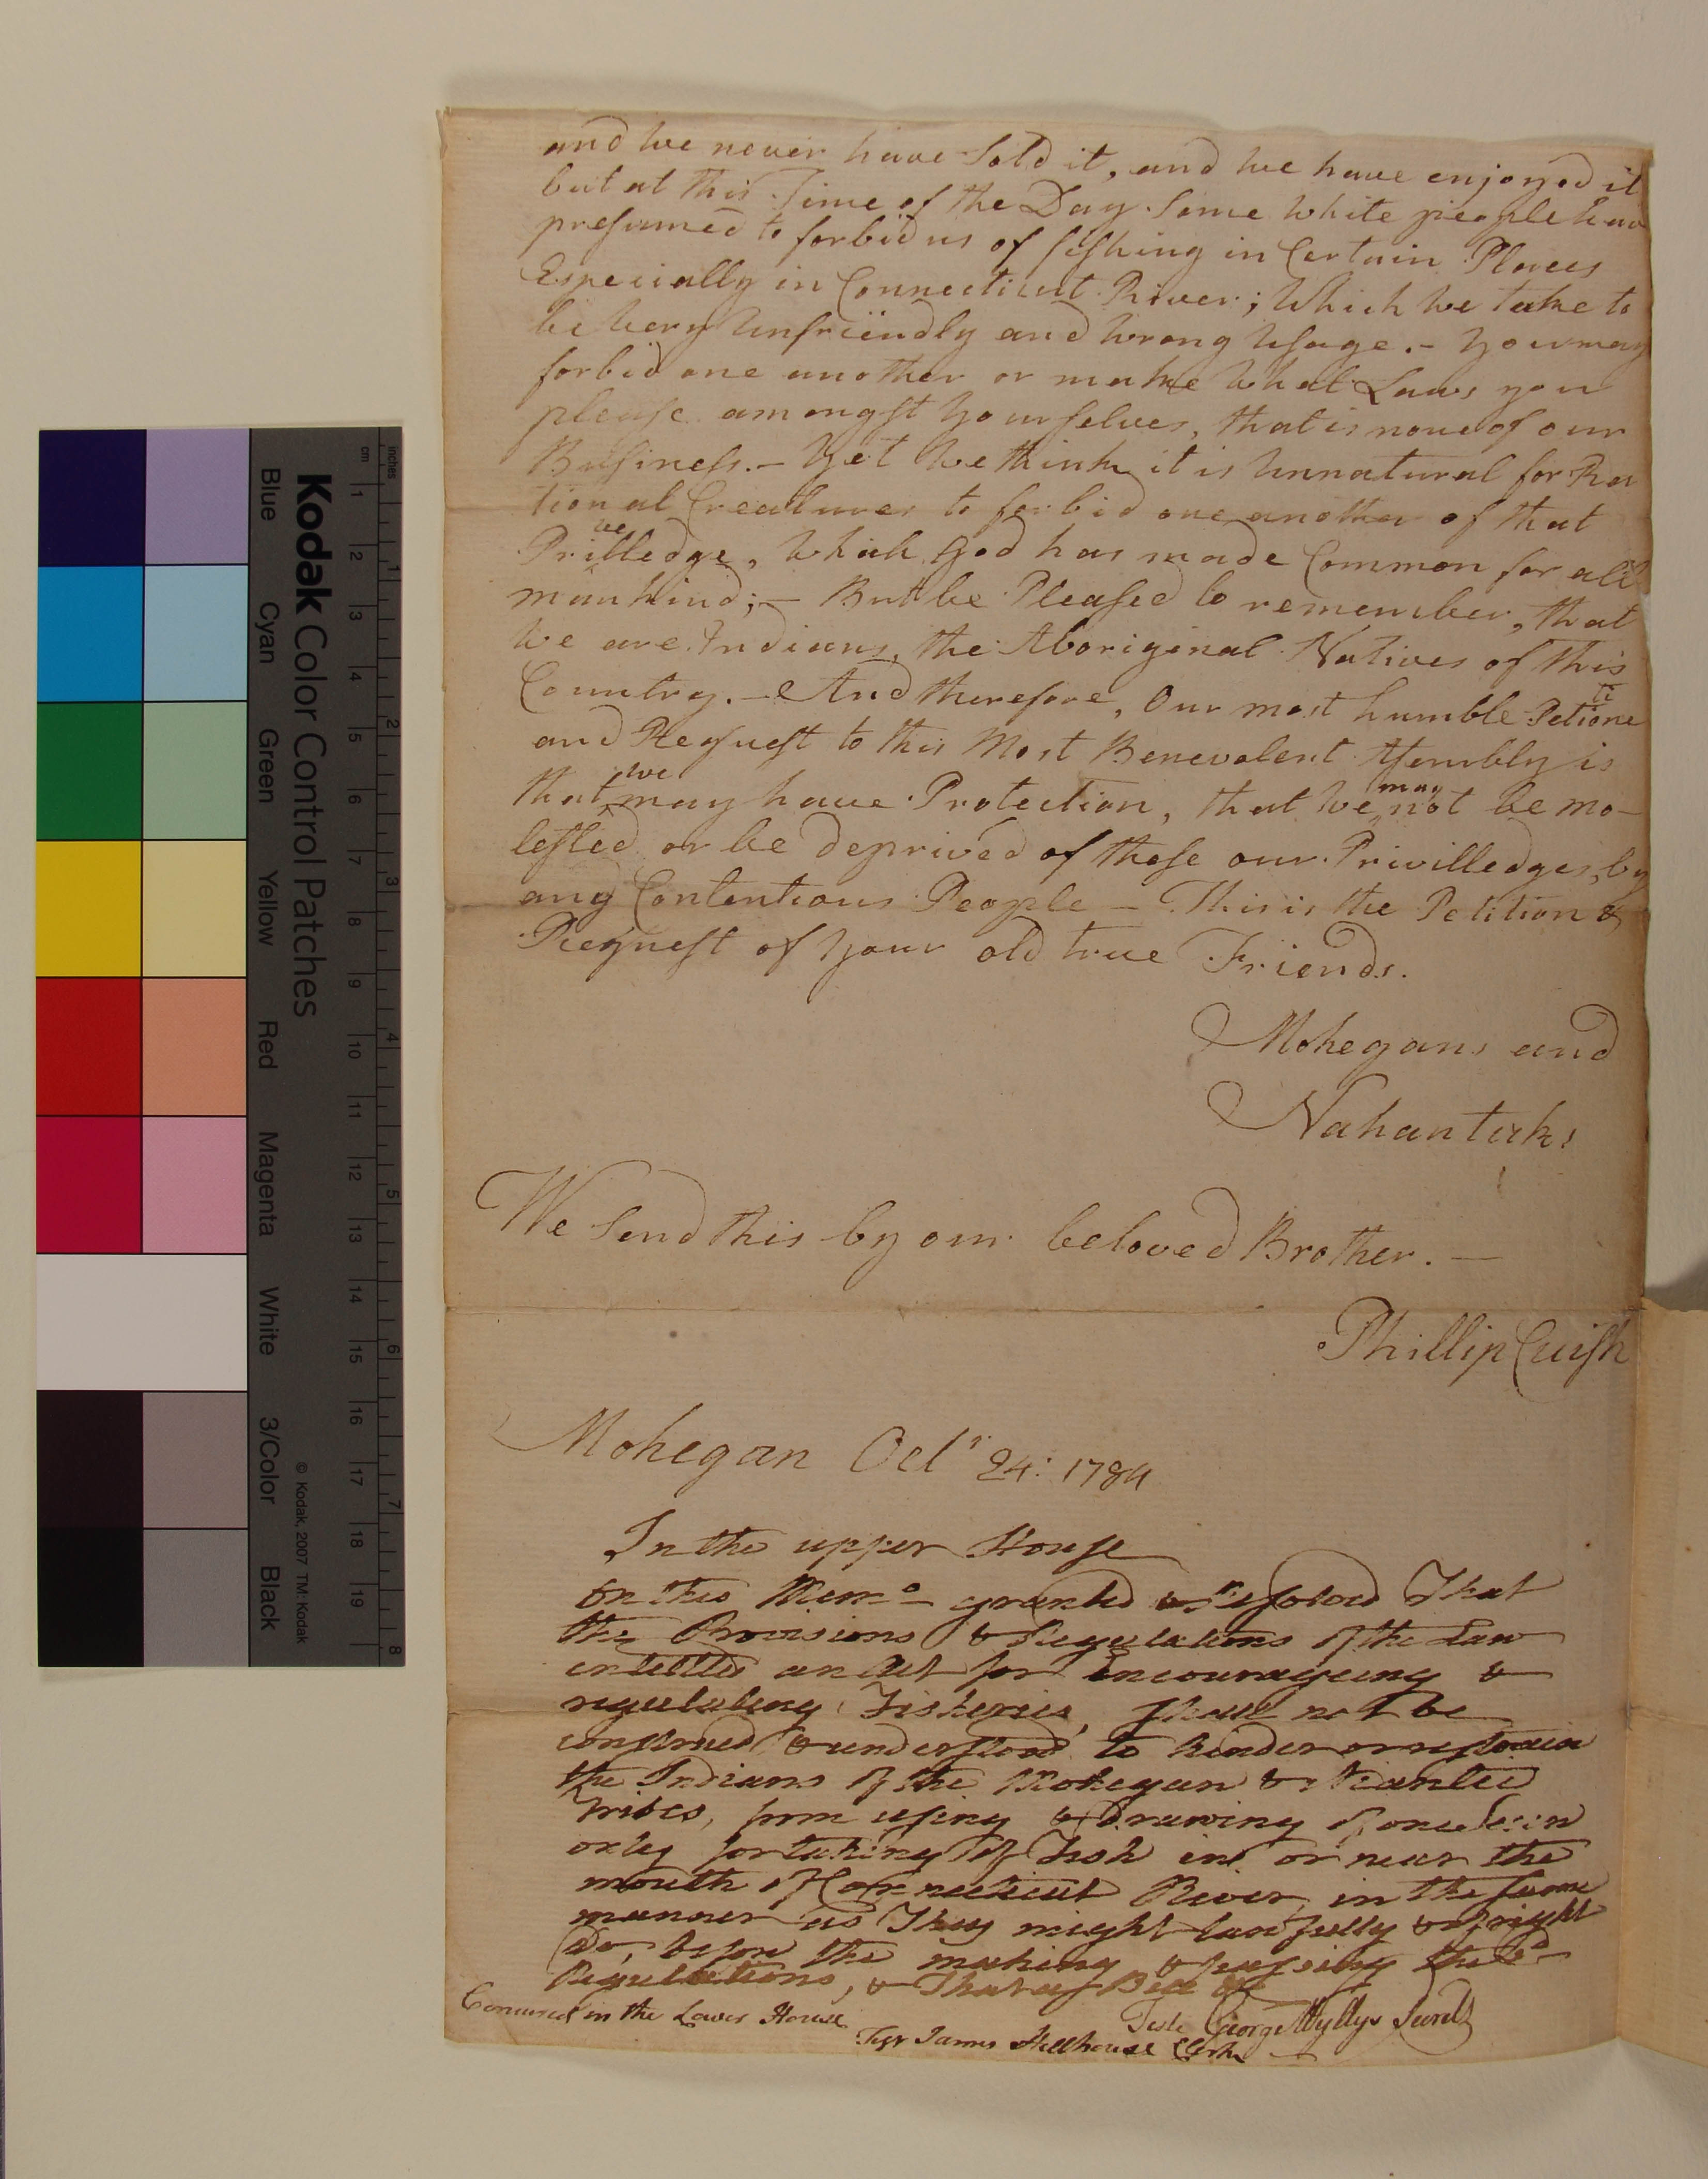 and we never have Sold it, and we have enjoyed it
but at this Time of the Day Some White pieople have
presumed to forbid us of fishing in Certain Places
Especially in Connecticut River; Which we take to
be very Unfriendly and wrong Usage.- You may
forbid one another or make What Laws you
please amongst Yourselves, that is none of our
Business.- Yet We think it is Unnatural for Ra
tional Creatures to forbid one another of that
Privelledge, Which God has made Common for all
mankind;- But be Pleased to remember, that
we are Indians, the Aboriginal Natives of this
Country.- And therefore, Our most humble Petition
and Request to this Most Benevolent Assembly is
that we may have Protection, that We may not be mo-
lested or be deprived of these our Privilledges, by
any Contentious People - This is the Petition &
Request of Your old true Friends.
Mohegans and
Nahantuks
We Send this by our beloved Brother. -
Phillip Cuish
Mohegan Octr 24: 1784
In the upper House
On this Memo granted & resolved That
the Provisions & Regulations of the Law
entitled an Act for Encourageing &
regulating Fisheries, shall not be
construed & understood to hinder or restrain
the Indians of the Mohegan & Niantic
Tribes, from using & Drawing of one Sein
only for taking of Fish in or near the
mouth of Connecticut River, in the same
manner as They might lawfully & of right
do, before the making & passing the sd
Regulations, & That a Bill &c
Teste George Wyllys Secrety
Concurred in the Lower House
Test James Hillhouse Clerk
Kodak Color Control Patches
© Kodak, 2007 TM: Kodak
Blue
Cyan
Green
Yellow
Red
Magenta
White
3/Color
Black
cm
1
2
3
4
5
6
7
8
9
10
11
12
13
14
15
16
17
18
19
inches
1
2
3
4
5
6
7
8